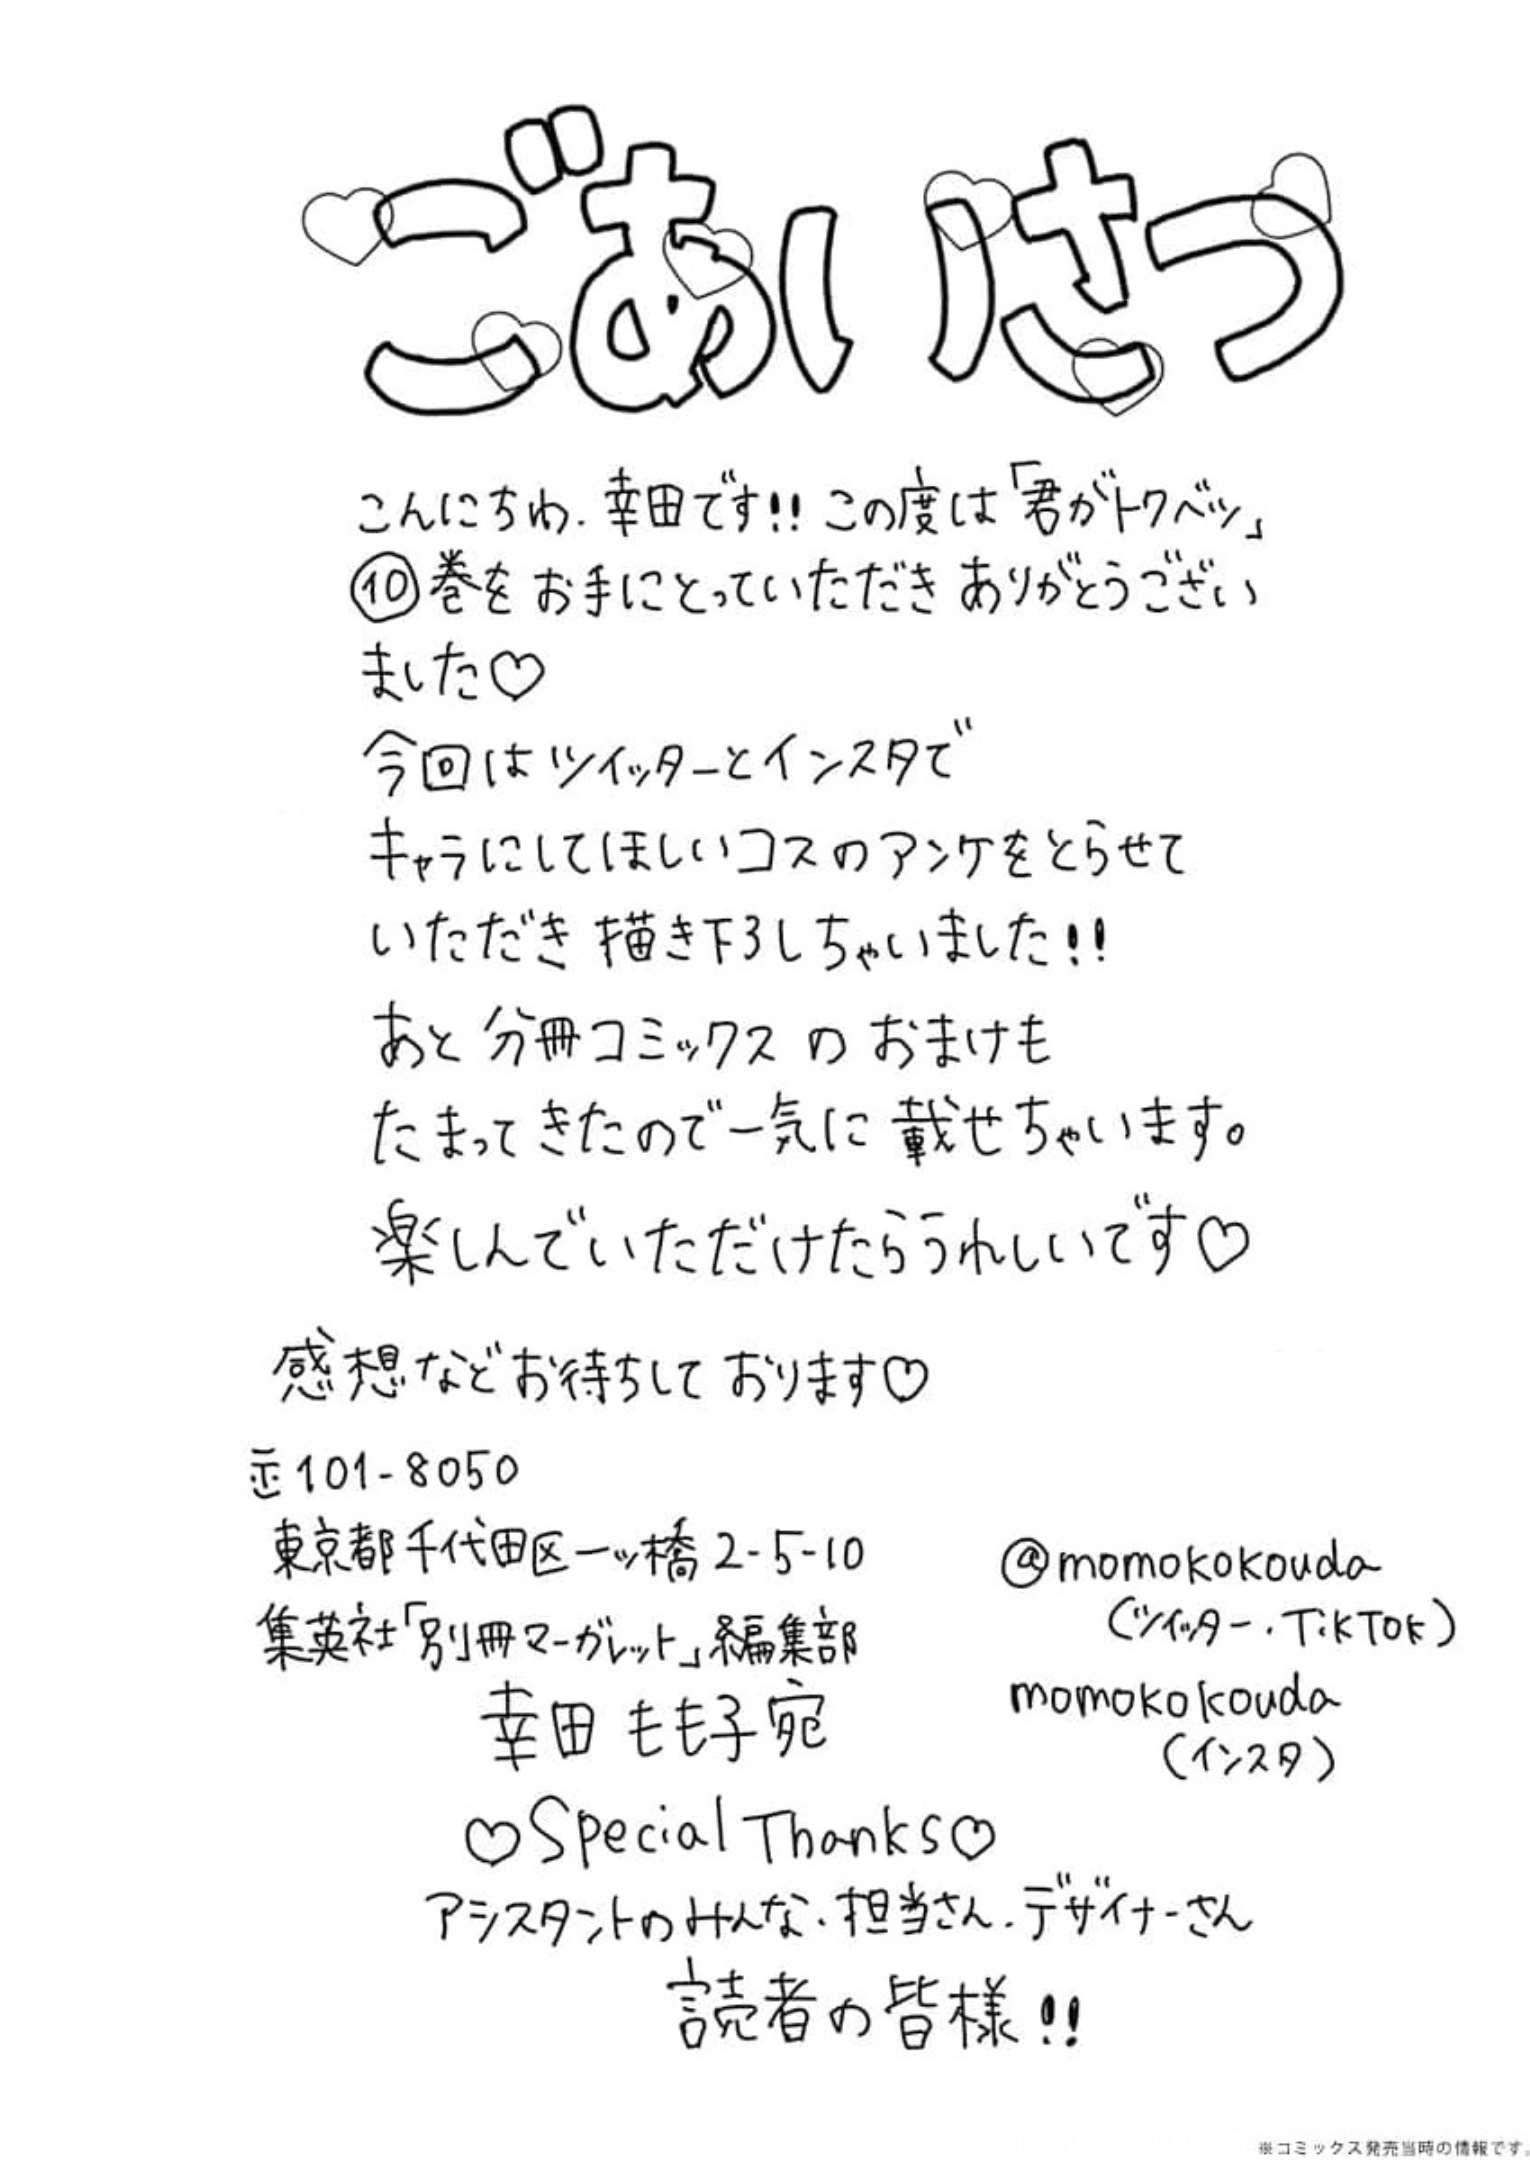 ごあいさつ
こんにちわ.幸田です!!この度は「君がトクベツ」
⑩巻をお手にとっていただきありがとうござい
ました♡
今回はツイッターとインスタで
キャラにしてほしいコスのアンケをとらせて
いただき描き下ろしちゃいました!!
あと分冊コミックスのおまけも
たまってきたので一気に載せちゃいます。
楽しんでいただけたらうれしいです♡
感想などお待ちしております♡
〒101-8050
東京都千代田区一ッ橋2-5-10
集英社「別冊マーガレット」編集部
幸田もも子宛
@momokokouda
(ツイッター・TikTok)
momokokouda
(インスタ)
♡Special Thanks♡
アシスタントのみんな.担当さん.デザイナーさん
読者の皆様!!
※コミックス発売当時の情報です。